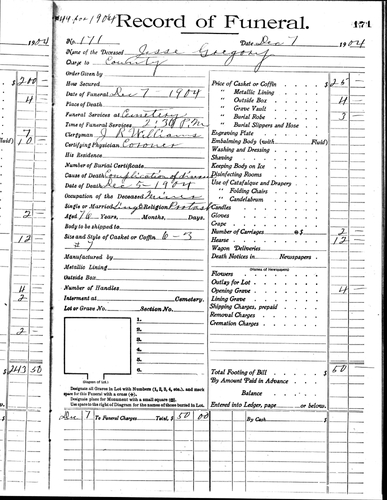 Record of Funeral. 171
No. 171 Date Dec 7 1904
Name of the Deceased Jesse Gregory
Charge to County
Order Given by
How Secured
Date of Funeral Dec 7 - 1904
Place of Death
Funeral Services at Cemetery
Time of Funeral Services 2:30 P.M.
Clergyman J R Williams
Certifying Physician Coroner
His Residence
Number of Burial Certificate
Cause of Death Complication of
Date of Death Dec 5 - 1904
Occupation of the Deceased
Single or Married Single Religion Protest
Aged 76 Years, Months, Days.
Body to be shipped to
Size and Style of Casket or Coffin 6-3
#7
Manufactured by
Metallic Lining
Outside Box
Number of Handles
Interment at Cemetery.
Lot or Grave No. Section No.
1.
2.
3.
4.
5.
6.
(Diagram of Lot.)
Designate all Graves in Lot with Numbers (1, 2, 3, 4, etc.), and mark
space for this Funeral with a cross (+).
Designate place for Monument with a small square (□).
Use space to the right of Diagram for the names of those buried in Lot.
Dec 7 To Funeral Charges Total, $ 50 00
Price of Casket or Coffin $ 25
" Metallic Lining
" Outside Box 4
" Grave Vault
" Burial Robe 3
" Burial Slippers and Hose
Engraving Plate
Embalming Body (with Fluid)
Washing and Dressing
Shaving
Keeping Body on Ice
Disinfecting Rooms
Use of Catafalque and Drapery
" Folding Chairs
" Candelabrum
Candles
Gloves
Crape
Number of Carriages @ $ 2
Hearse 12
Wagon Deliveries
Death Notices in Newspapers
(Names of Newspapers)
Flowers
Outlay for Lot
Opening Grave 4
Lining Grave
Shipping Charges, prepaid
Removal Charges
Cremation Charges
Total Footing of Bill $ 50
By Amount Paid in Advance
Balance
Entered into Ledger, page or below.
By Cash $
1904
$ 200
4
7
Fluid) 10
2
12
11
2
2
$ 243 50